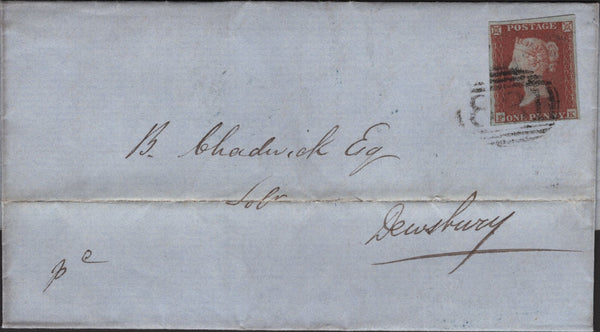 POSTAGE
ONE PENNY
B. Chadwick Esq
Solr
Dewsbury
pc